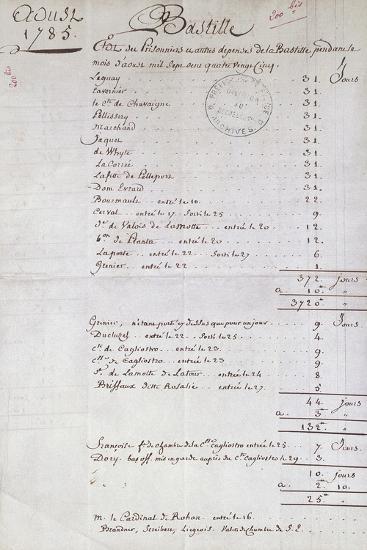 Aoust
1785.
Bastille
200 bis
200 bis
Etat des Prisonniers et autres depenses de la Bastille, pendant le
mois d'aoust mil Sept cent quatre vingt Cinq.
Jours
Lequay 31.
Tavernier 31.
le Cte. de Chavaigne 31.
Pellissery 31.
Marchand 31.
Jaquet 31.
de Whyte 31.
La Corrée 31.
Lafitte de Pelleport 31.
Dom Evrard 31.
entré le 10. 22.
Cerval entré le 17. Sorti le 25 9.
De. de Valois de Lamotte entrée le 20 12.
Bon. de Planta entré le 20 12.
Laporte entré le 22. Sorti le 27 6.
Grenier entré le 22 1.
372 Jours
a 10.
3720 "
Grenier, n'etant porté cy dessus que pour un jour 9 Jours
Ducluzel entré le 22. Sorti le 25 4.
Cte. de Cagliostro entré le 23 9.
Csse. de Cagliostro entrée le 23 9.
Sr. de Lamotte de Latour entré le 24 8
Briffaux dite Rosalie entrée le 27. 5
44 Jours
a 3
132. "
Françoise fe. de chambre de la Csse. Cagliostro entrée le 25 7 Jours
Dory. bas off. mis en garde auprès du Cte. Cagliostro le 29. 3.
10. Jours
a 2. 10.
25 "
M. le Cardinal de Rohan entré le 16.
Brandner, Scribert, Liegeois. Valets de Chambre de S. E.